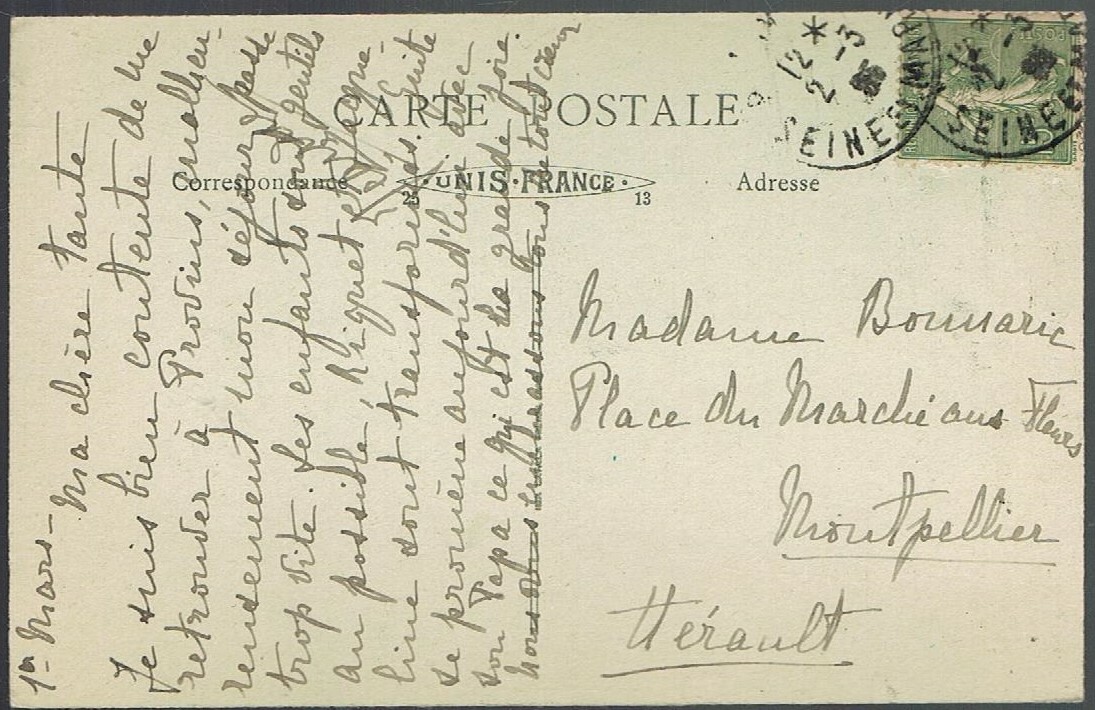 CARTE POSTALE
Correspondance
UNIS·FRANCE
25 13
Adresse
1er Mars-
Ma chère tante
Je suis bien contente de me
retrouver à Provins, malheu-
reusement mon séjour passe
trop vite. Les enfants sont gentils
au possible, Riquet et
line sont transformés.
se promène aujourd'hui avec
son Papa ce qui est sa grande joie.
Nous vous embrassons tous de tout cœur
Madame Bonnaric
Place du Marché aux Fleurs
Montpellier
Hérault
12 *
2 -3
SEINE
12 *
2 -3
SEINE
POSTE